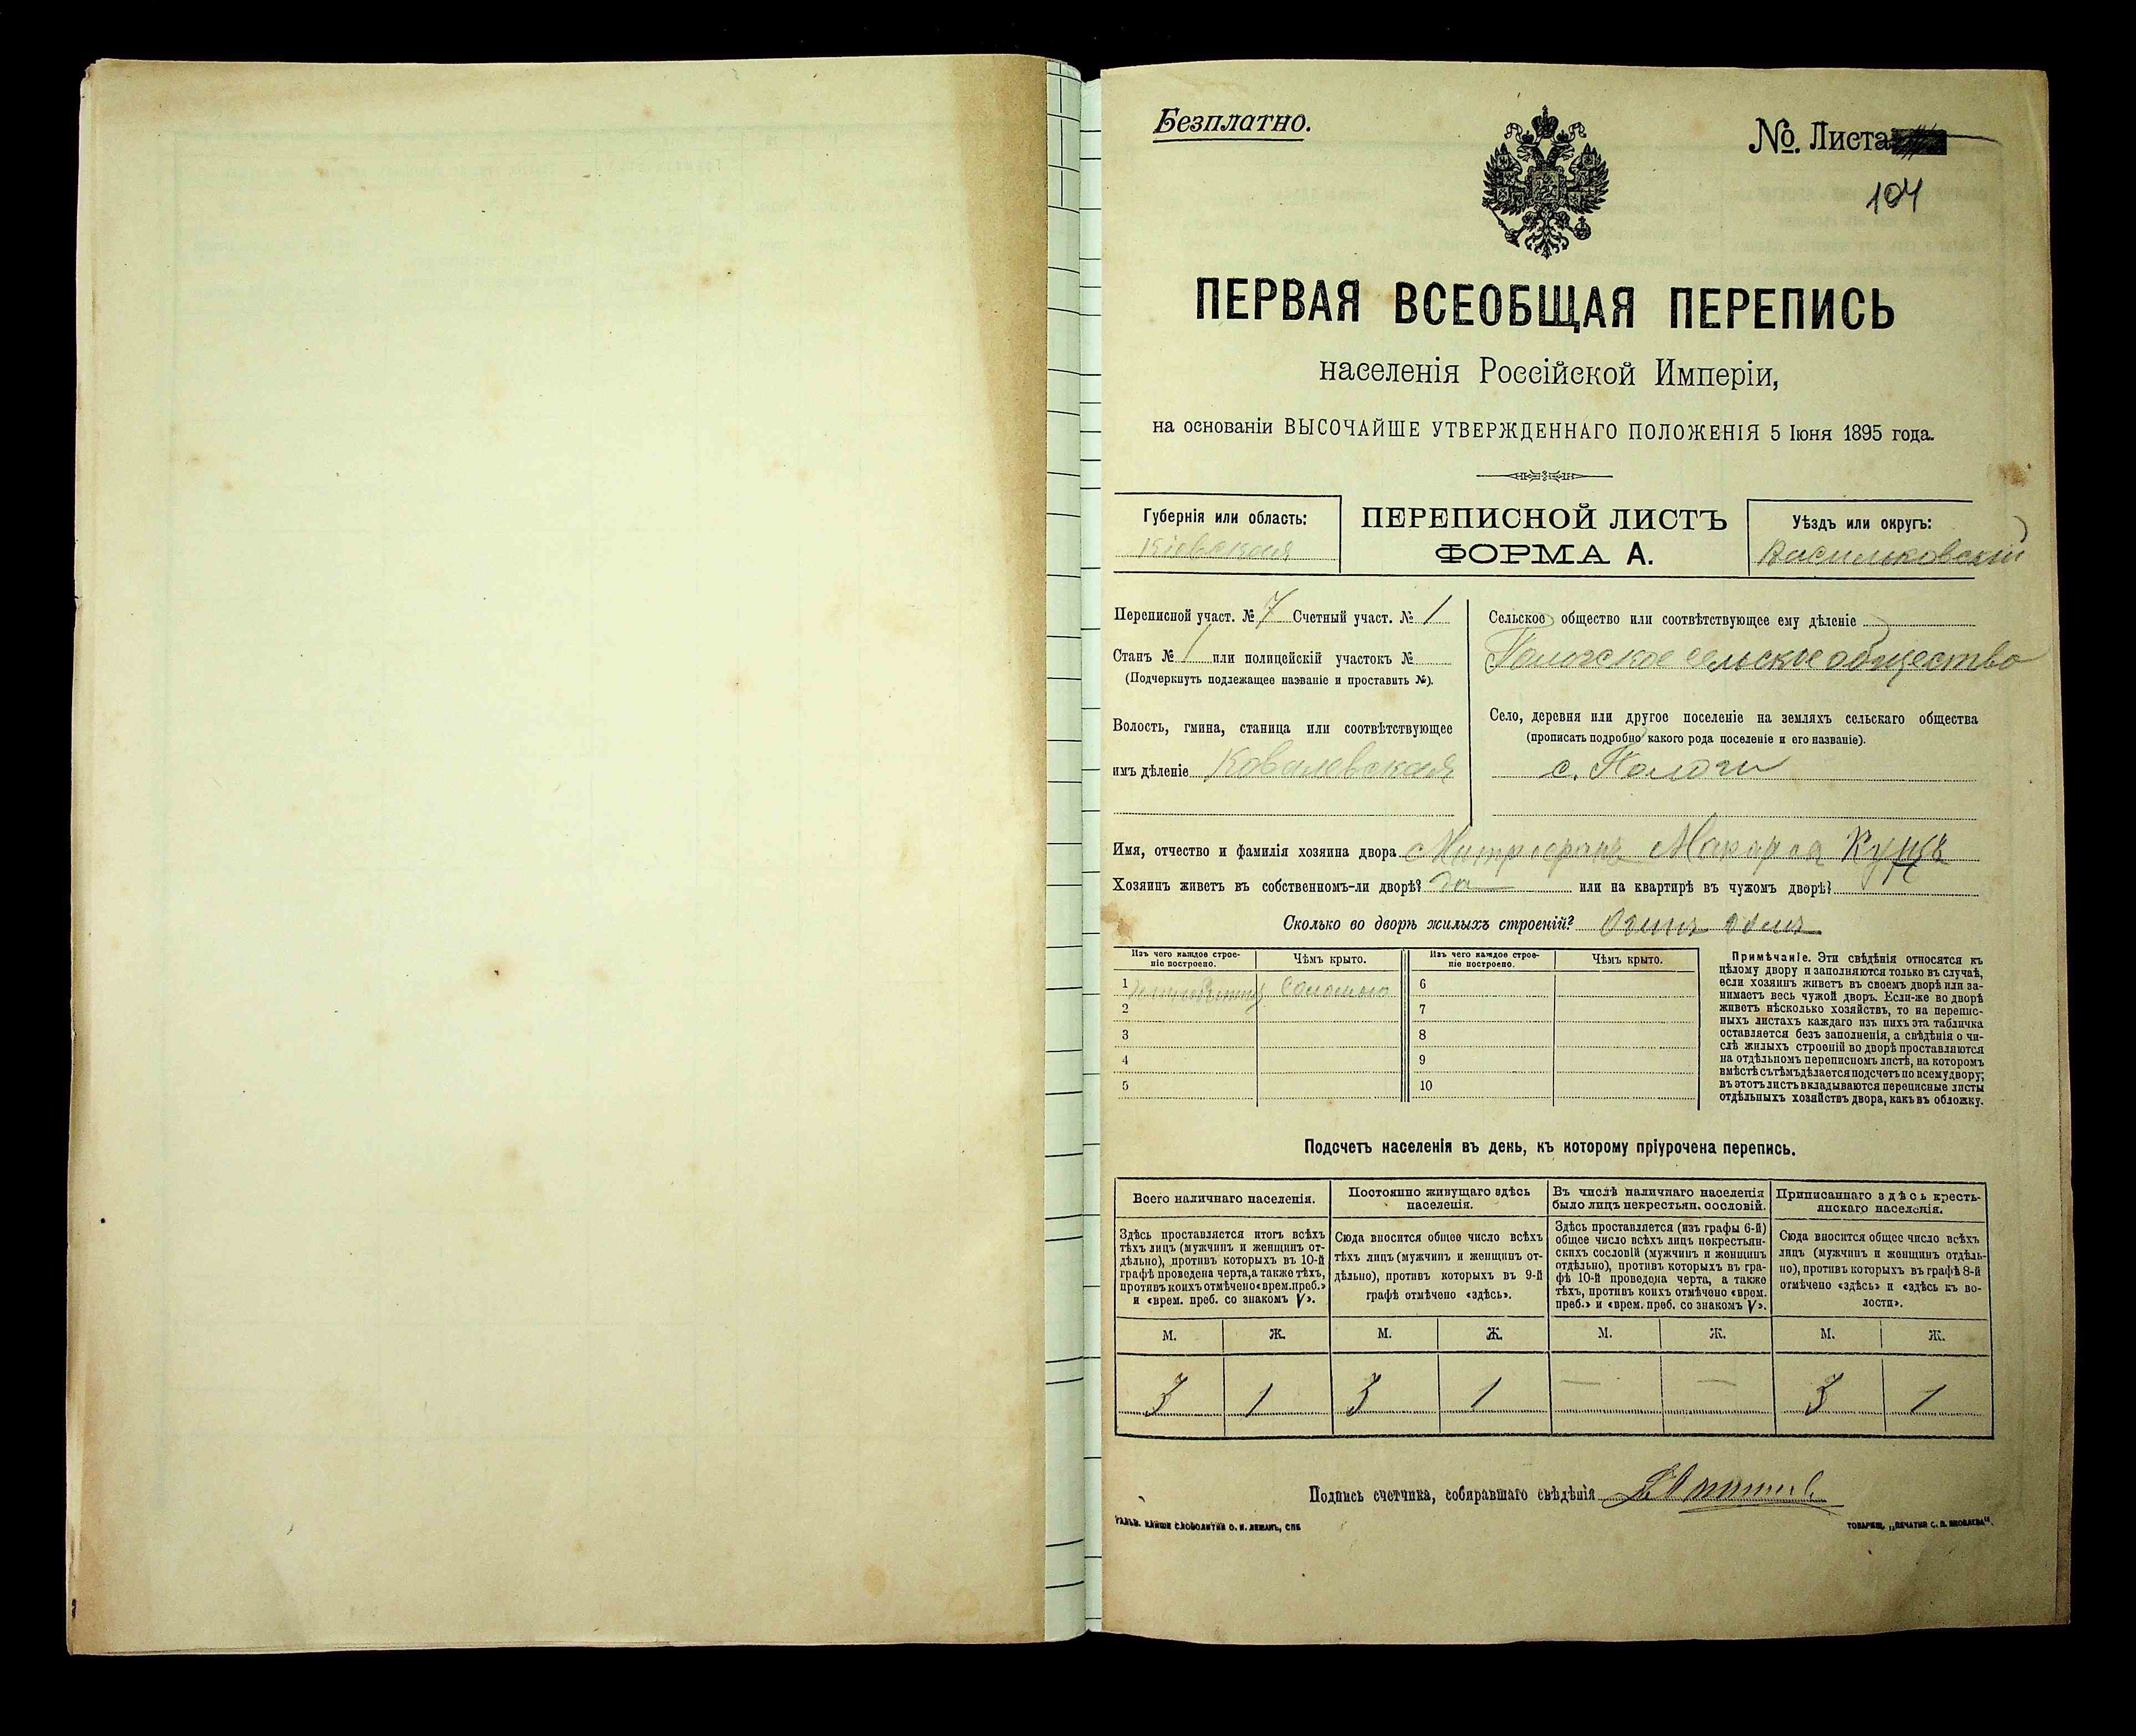 Безплатно.
№. Листа
104
ПЕРВАЯ ВСЕОБЩАЯ ПЕРЕПИСЬ
населенія Россійской Имперіи,
на основаніи ВЫСОЧАЙШЕ УТВЕРЖДЕННАГО ПОЛОЖЕНІЯ 5 Іюня 1895 года.
Губернія или область:
Кіевская
ПЕРЕПИСНОЙ ЛИСТЪ
ФОРМА А.
Уѣздъ или округъ:
Васильковскій
Переписной участ. № 7 Счетный участ. № 1
Станъ № 1 или полицейскій участокъ №
(Подчеркнуть подлежащее названіе и проставить №).
Волость, гмина, станица или соотвѣтствующее
имъ дѣленіе Ковалевская
Сельское общество или соотвѣтствующее ему дѣленіе
сельское общество
Село, деревня или другое поселеніе на земляхъ сельскаго общества
(прописать подробно какого рода поселеніе и его названіе).
с. Пологи
Имя, отчество и фамилія хозяина двора Митрофанъ Макаровъ Куцъ
Хозяинъ живетъ въ собственномъ-ли дворѣ? да или на квартирѣ въ чужомъ дворѣ?
Сколько во дворѣ жилыхъ строеній? Одинъ домъ
Изъ чего каждое строе-
ніе построено.
Чѣмъ крыто.
Изъ чего каждое строе-
ніе построено.
Чѣмъ крыто.
1 Соломою 6
2 7
3 8
4 9
5 10
Примѣчаніе. Эти свѣдѣнія относятся къ
цѣлому двору и заполняются только въ случаѣ,
если хозяинъ живетъ въ своемъ дворѣ или за-
нимаетъ весь чужой дворъ. Если-же во дворѣ
живетъ нѣсколько хозяйствъ, то на перепис-
ныхъ листахъ каждаго изъ нихъ эта табличка
оставляется безъ заполненія, а свѣдѣнія о чи-
слѣ жилыхъ строеній во дворѣ проставляются
на отдѣльномъ переписномъ листѣ, на которомъ
вмѣстѣ съ тѣмъ дѣлается подсчетъ по всему двору;
въ этотъ листъ вкладываются переписные листы
отдѣльныхъ хозяйствъ двора, какъ въ обложку.
Подсчетъ населенія въ день, къ которому пріурочена перепись.
Всего наличнаго населенія.
Здѣсь проставляется итогъ всѣхъ
тѣхъ лицъ (мужчинъ и женщинъ от-
дѣльно), противъ которыхъ въ 10-й
графѣ проведена черта, а также тѣхъ,
противъ коихъ отмѣчено «врем. преб.»
и «врем. преб. со знакомъ V».
Постоянно живущаго здѣсь
населенія.
Сюда вносится общее число всѣхъ
тѣхъ лицъ (мужчинъ и женщинъ от-
дѣльно), противъ которыхъ въ 9-й
графѣ отмѣчено «здѣсь».
Въ числѣ наличнаго населенія
было лицъ некрестьян. сословій.
Здѣсь проставляется (изъ графы 6-й)
общее число всѣхъ лицъ некрестьян-
скихъ сословій (мужчинъ и женщинъ
отдѣльно), противъ которыхъ въ гра-
фѣ 10-й проведена черта, а также
тѣхъ, противъ коихъ отмѣчено «врем.
преб.» и «врем. преб. со знакомъ V».
Приписаннаго здѣсь кресть-
янскаго населенія.
Сюда вносится общее число всѣхъ
лицъ (мужчинъ и женщинъ отдѣль-
но), противъ которыхъ въ графѣ 8-й
отмѣчено «здѣсь» и «здѣсь къ во-
лости».
М. Ж. М. Ж. М. Ж. М. Ж.
3 1 3 1 — — 3 1
Подпись счетчика, собиравшаго свѣдѣнія
ТОВАРИЩ. „ПЕЧАТНЯ С. П. ЯКОВЛЕВА".